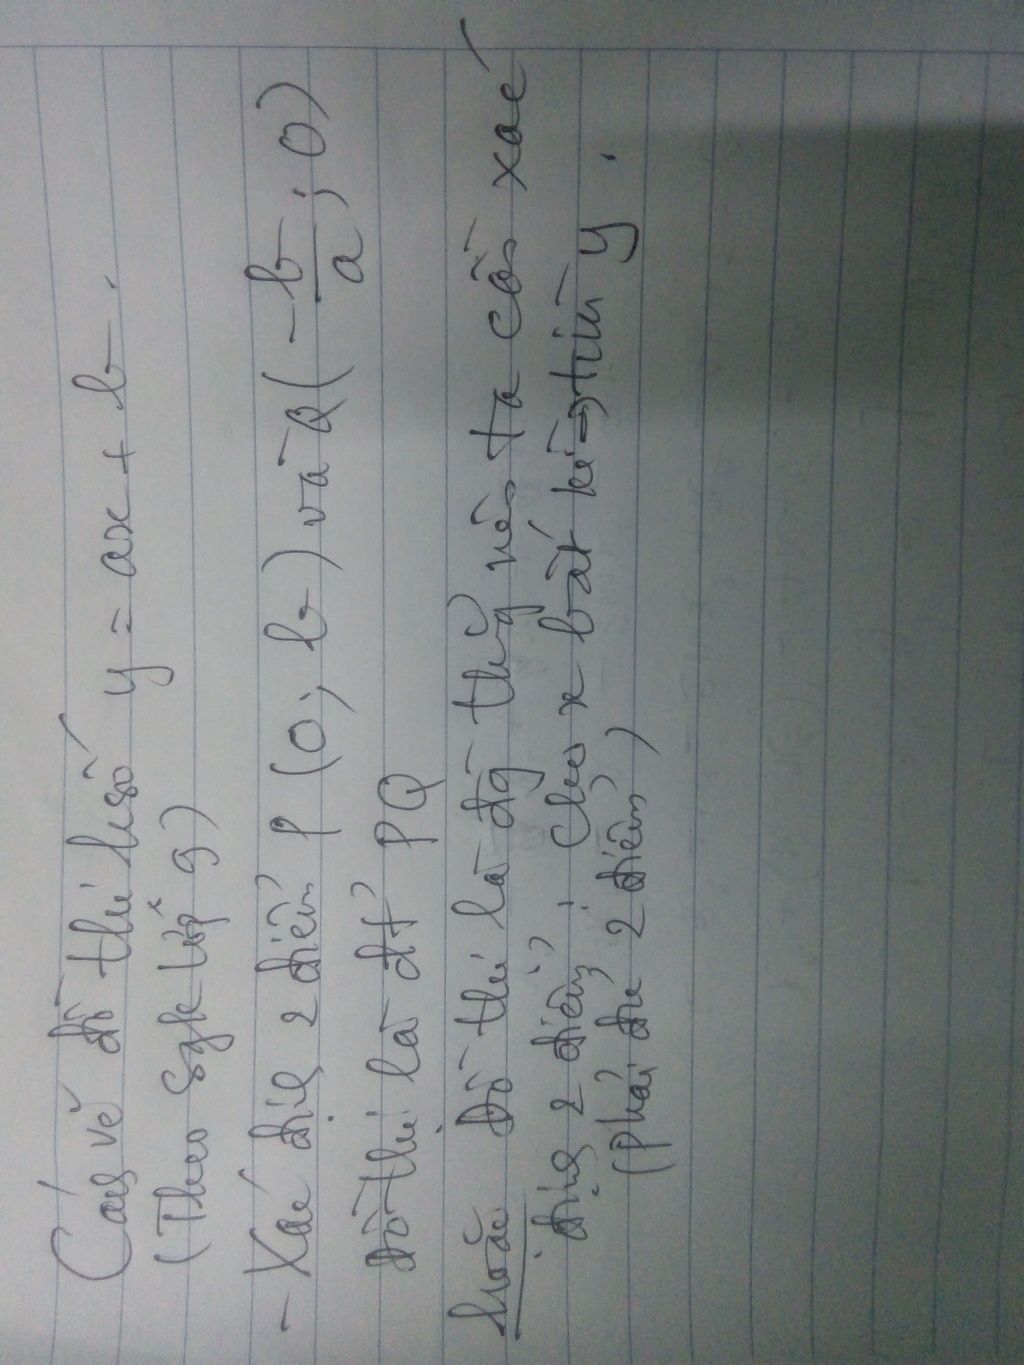 Cách vẽ đồ thị hsố y = ax + b.
(Theo Sgk lớp 9)
- Xác định 2 điểm P (0; b) và Q (-b/a; 0)
Đồ thị là đt PQ
hoặc Đồ thị là đg thg nên ta cần xác
định 2 điểm; Cho x bất kì → tìm y.
(phải đủ 2 điểm)